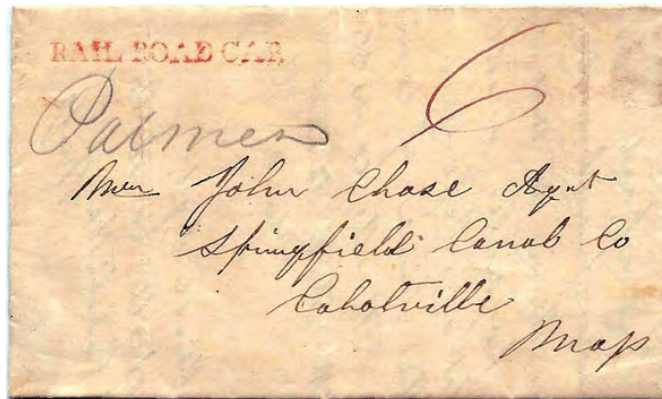 RAIL ROAD CAR
6
Palmer
Mr John Chase Agent
Springfield Canal Co
Cabotville
Mass